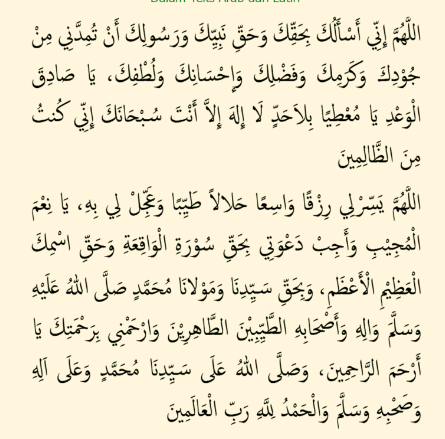 Dalam Teks Arab dan Latin
اللَّهُمَّ إِنِّي أَسْأَلُكَ بِحَقِّكَ وَحَقِّ نَبِيِّكَ وَرَسُولِكَ أَنْ تُمِدَّنِي مِنْ
جُوْدِكَ وَكَرَمِكَ وَفَضْلِكَ وَإِحْسَانِكَ وَلُطْفِكَ، يَا صَادِقَ
الْوَعْدِ يَا مُعْطِيًا بِلاَحَدٍّ لَا إِلهَ إِلاَّ أَنْتَ سُبْحَانَكَ إِنِّي كُنتُ
مِنَ الظَّالِمِينَ
اللَّهُمَّ يَسِّرْلِي رِزْقًا وَاسِعًا حَلالاً طَيِّبًا وَعَجِّلْ لِي بِهِ، يَا نِعْمَ
الْمُجِيْبِ وَأَجِبْ دَعْوَتِي بِحَقِّ سُوْرَةِ الْوَاقِعَةِ وَحَقِّ اسْمِكَ
الْعَظِيْمِ الْأَعْظَمِ، وَبِحَقِّ سَيِّدِنَا وَمَوْلانَا مُحَمَّدٍ صَلَّى اللهُ عَلَيْهِ
وَسَلَّمَ وَالِهِ وَأَصْحَابِهِ الطَّيِّبِيْنَ الطَّاهِرِيْنَ وَارْحَمْنِي بِرَحْمَتِكَ يَا
أَرْحَمَ الرَّاحِمِينَ، وَصَلَّى اللهُ عَلَى سَيِّدِنَا مُحَمَّدٍ وَعَلَى آلِهِ
وَصَحْبِهِ وَسَلَّمَ وَالْحَمْدُ لِلَّهِ رَبِّ الْعَالَمِينَ